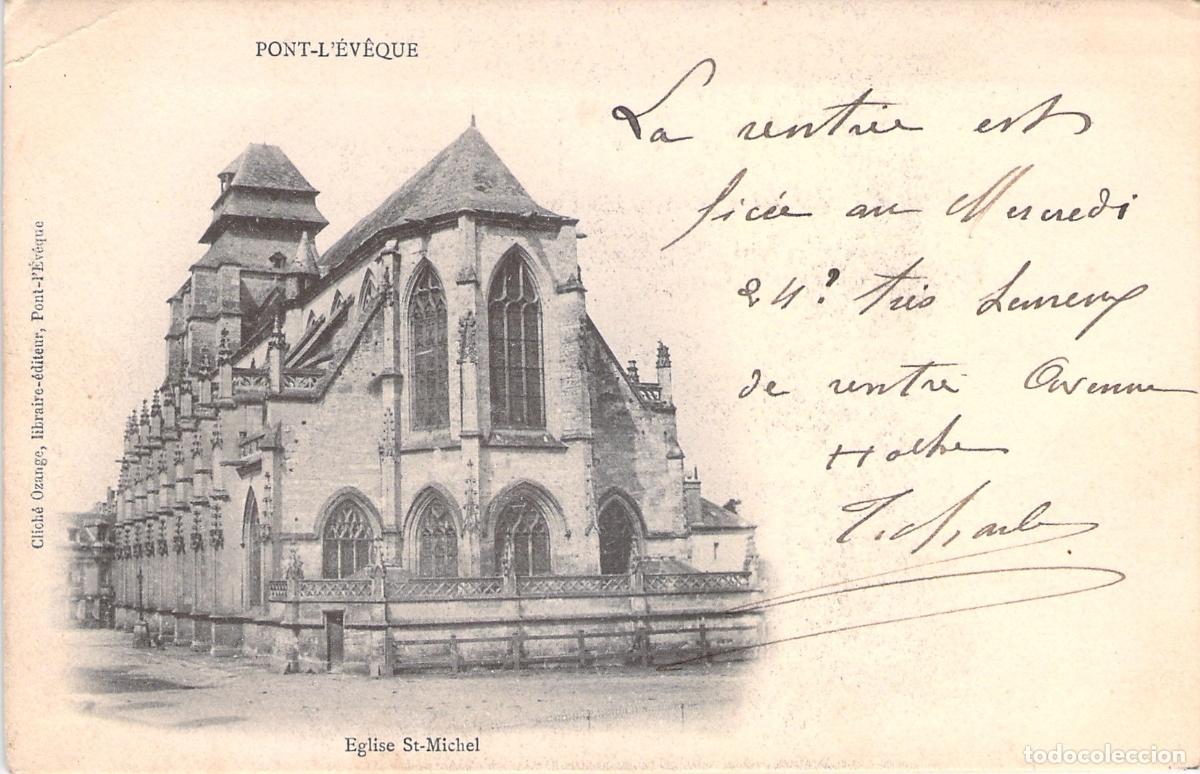 PONT-L'ÉVÊQUE
La rentrée est
fixée au Mercredi
24. très heureux
de rentré
Cliché Ozange, libraire-éditeur, Pont-l'Evêque
Eglise St-Michel
todocoleccion